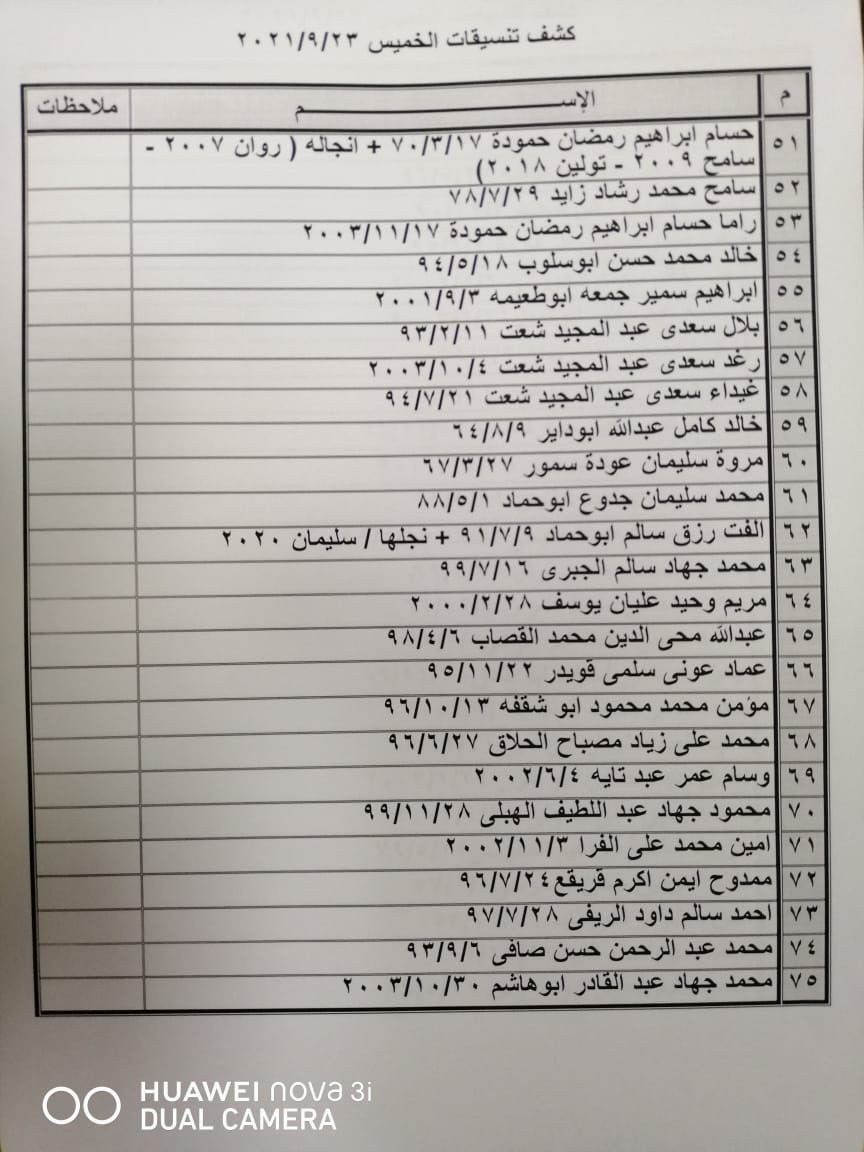 كشف تنسيقات الخميس ٢٠٢١/٩/٢٣
م الإســـــــم ملاحظات
٥١ حسام ابراهيم رمضان حمودة ٧٠/٣/١٧ + انجاله ( روان ٢٠٠٧ -
سامح ٢٠٠٩ - تولين ٢٠١٨)
٥٢ سامح محمد رشاد زايد ٧٨/٧/٢٩
٥٣ راما حسام ابراهيم رمضان حمودة ٢٠٠٣/١١/١٧
٥٤ خالد محمد حسن ابوسلوب ٩٤/٥/١٨
٥٥ ابراهيم سمير جمعه ابوطعيمه ٢٠٠١/٩/٣
٥٦ بلال سعدى عبد المجيد شعت ٩٣/٢/١١
٥٧ رغد سعدى عبد المجيد شعت ٢٠٠٣/١٠/٤
٥٨ غيداء سعدى عبد المجيد شعت ٩٤/٧/٢١
٥٩ خالد كامل عبدالله ابوداير ٦٤/٨/٩
٦٠ مروة سليمان عودة سمور ٦٧/٣/٢٧
٦١ محمد سليمان جدوع ابوحماد ٨٨/٥/١
٦٢ الفت رزق سالم ابوحماد ٩١/٧/٩ + نجلها / سليمان ٢٠٢٠
٦٣ محمد جهاد سالم الجبرى ٩٩/٧/١٦
٦٤ مريم وحيد عليان يوسف ٢٠٠٠/٢/٢٨
٦٥ عبدالله محى الدين محمد القصاب ٩٨/٤/٦
٦٦ عماد عونى سلمى قويدر ٩٥/١١/٢٢
٦٧ مؤمن محمد محمود ابو شقفه ٩٦/١٠/١٣
٦٨ محمد على زياد مصباح الحلاق ٩٦/٦/٢٧
٦٩ وسام عمر عبد تايه ٢٠٠٢/٦/٤
٧٠ محمود جهاد عبد اللطيف الهبلى ٩٩/١١/٢٨
٧١ امين محمد على الفرا ٢٠٠٢/١١/٣
٧٢ ممدوح ايمن اكرم قريقع ٩٦/٧/٢٤
٧٣ احمد سالم داود الريفى ٩٧/٧/٢٨
٧٤ محمد عبد الرحمن حسن صافى ٩٣/٩/٦
٧٥ محمد جهاد عبد القادر ابوهاشم ٢٠٠٣/١٠/٣٠
HUAWEI nova 3i
DUAL CAMERA